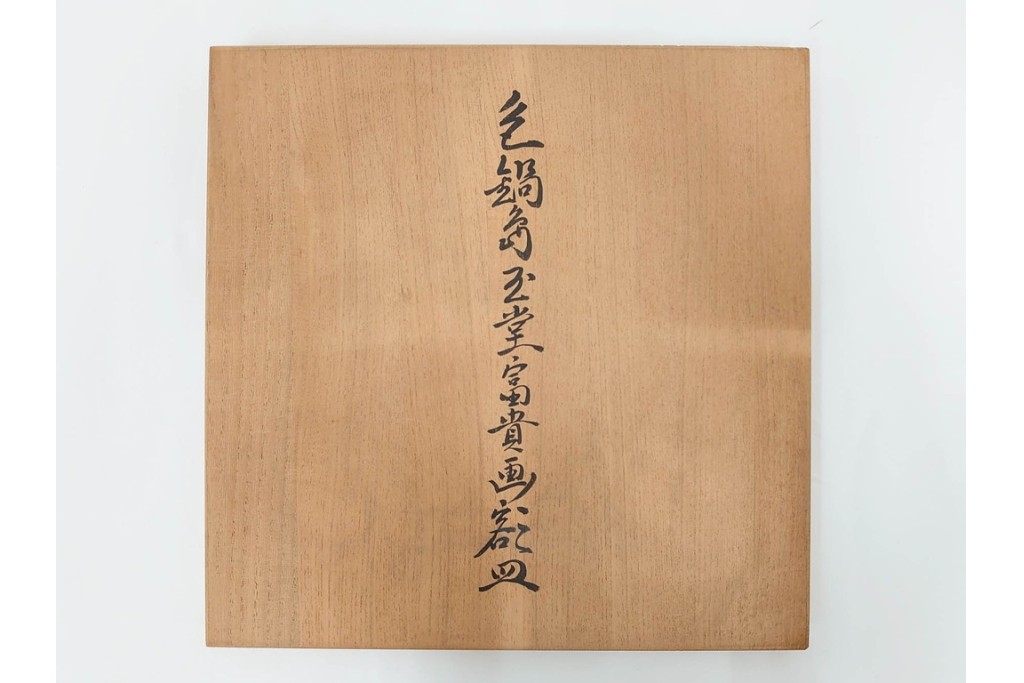 色鍋島玉堂富貴画額皿